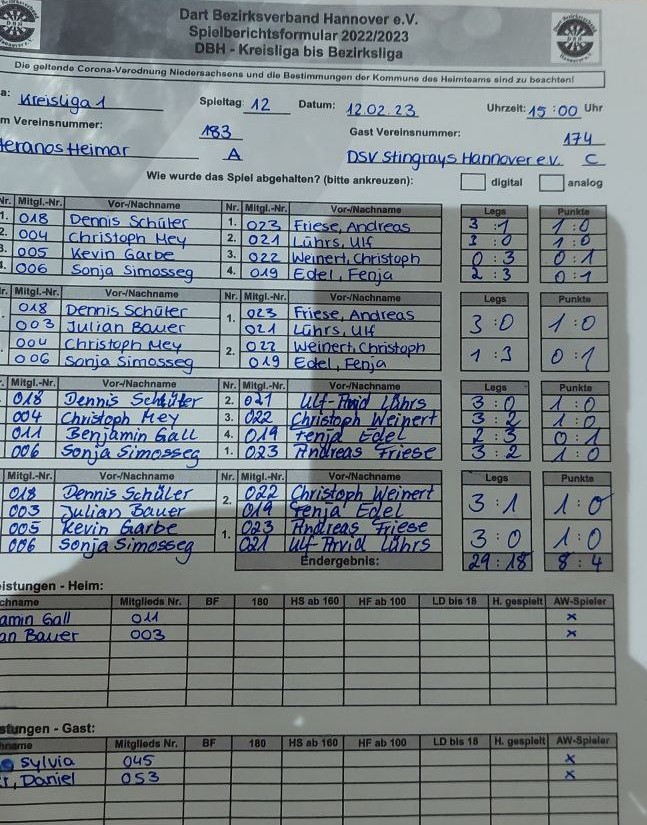 Dart Bezirksverband Hannover e.V.
Spielberichtsformular 2022/2023
DBH - Kreisliga bis Bezirksliga
Die geltende Corona-Verodnung Niedersachsens und die Bestimmungen der Kommune des Heimteams sind zu beachten!
a: Kreisliga 1 Spieltag: 12 Datum: 12.02.23 Uhrzeit: 15:00 Uhr
m Vereinsnummer: 183 Gast Vereinsnummer: 174
eranos Heimar A DSV Stingrays Hannover e.V. C
Wie wurde das Spiel abgehalten? (bitte ankreuzen): digital analog
Nr. Mitgl.-Nr. Vor-/Nachname Nr. Mitgl.-Nr. Vor-/Nachname Legs Punkte
1. 018 Dennis Schüler 1. 023 Friese, Andreas 3 :1 1 : 0
2. 004 Christoph Mey 2. 021 Lührs, Ulf 3 : 0 1 : 0
3. 005 Kevin Garbe 3. 022 Weinert, Christoph 0 : 3 0 : 1
4. 006 Sonja Simosseg 4. 019 Edel, Fenja 2 : 3 0 : 1
r. Mitgl.-Nr. Vor-/Nachname Nr. Mitgl.-Nr. Vor-/Nachname Legs Punkte
018 Dennis Schüler 1. 023 Friese, Andreas 3 : 0 1 : 0
003 Julian Bauer 021 Lührs, Ulf
004 Christoph Mey 2. 022 Weinert, Christoph 1 : 3 0 : 1
006 Sonja Simosseg 019 Edel, Fenja
Mitgl.-Nr. Vor-/Nachname Nr. Mitgl.-Nr. Vor-/Nachname Legs Punkte
018 Dennis Schüler 2. 021 Ulf-Arvid Lührs 3 : 0 1 : 0
004 Christoph Mey 3. 022 Christoph Weinert 3 : 2 1 : 0
011 Benjamin Gall 4. 019 Fenja Edel 2 : 3 0 : 1
006 Sonja Simosseg 1. 023 Andreas Friese 3 : 2 1 : 0
Mitgl.-Nr. Vor-/Nachname Nr. Mitgl.-Nr. Vor-/Nachname Legs Punkte
018 Dennis Schüler 2. 022 Christoph Weinert 3 : 1 1 : 0
003 Julian Bauer 019 Fenja Edel
005 Kevin Garbe 1. 023 Andreas Friese 3 : 0 1 : 0
006 Sonja Simosseg 021 Ulf-Arvid Lührs
Endergebnis: 29 : 18 8 : 4
eistungen - Heim:
chname Mitglieds Nr. BF 180 HS ab 160 HF ab 100 LD bis 18 H. gespielt AW-Spieler
amin Gall 011 x
an Bauer 003 x
stungen - Gast:
hname Mitglieds Nr. BF 180 HS ab 160 HF ab 100 LD bis 18 H. gespielt AW-Spieler
Sylvia 045 x
r, Daniel 053 x